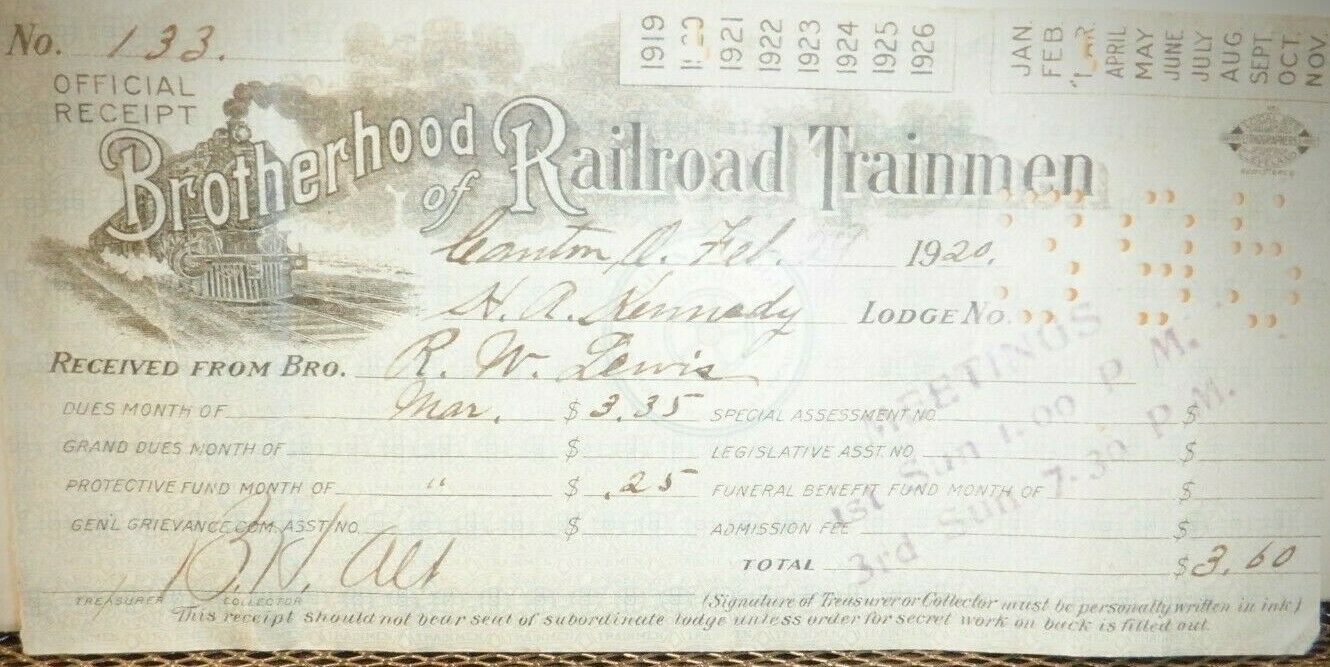 No. 133.
OFFICIAL
RECEIPT
1919
1920
1921
1922
1923
1924
1925
1926
JAN.
FEB.
MAR.
APRIL
MAY
JUNE
JULY
AUG.
SEPT.
OCT.
NOV.
Brotherhood of Railroad Trainmen
Canton O. Feb. 1920.
H. A. Kennedy LODGE No. 
RECEIVED FROM BRO. R. W. Lewis
DUES MONTH OF Mar. $ 3.35 SPECIAL ASSESSMENT NO. $
GRAND DUES MONTH OF $ LEGISLATIVE ASST. NO. $
PROTECTIVE FUND MONTH OF " $ .25 FUNERAL BENEFIT FUND MONTH OF $
GEN'L GRIEVANCE COM. ASST. NO. $ ADMISSION FEE $
TOTAL $ 3.60
B. H. Alt
TREASURER COLLECTOR
(Signature of Treasurer or Collector must be personally written in ink)
This receipt should not bear seal of subordinate lodge unless order for secret work on back is filled out.
MEETINGS
1st Sun 1.00 P. M.
3rd Sun 7.30 P. M.